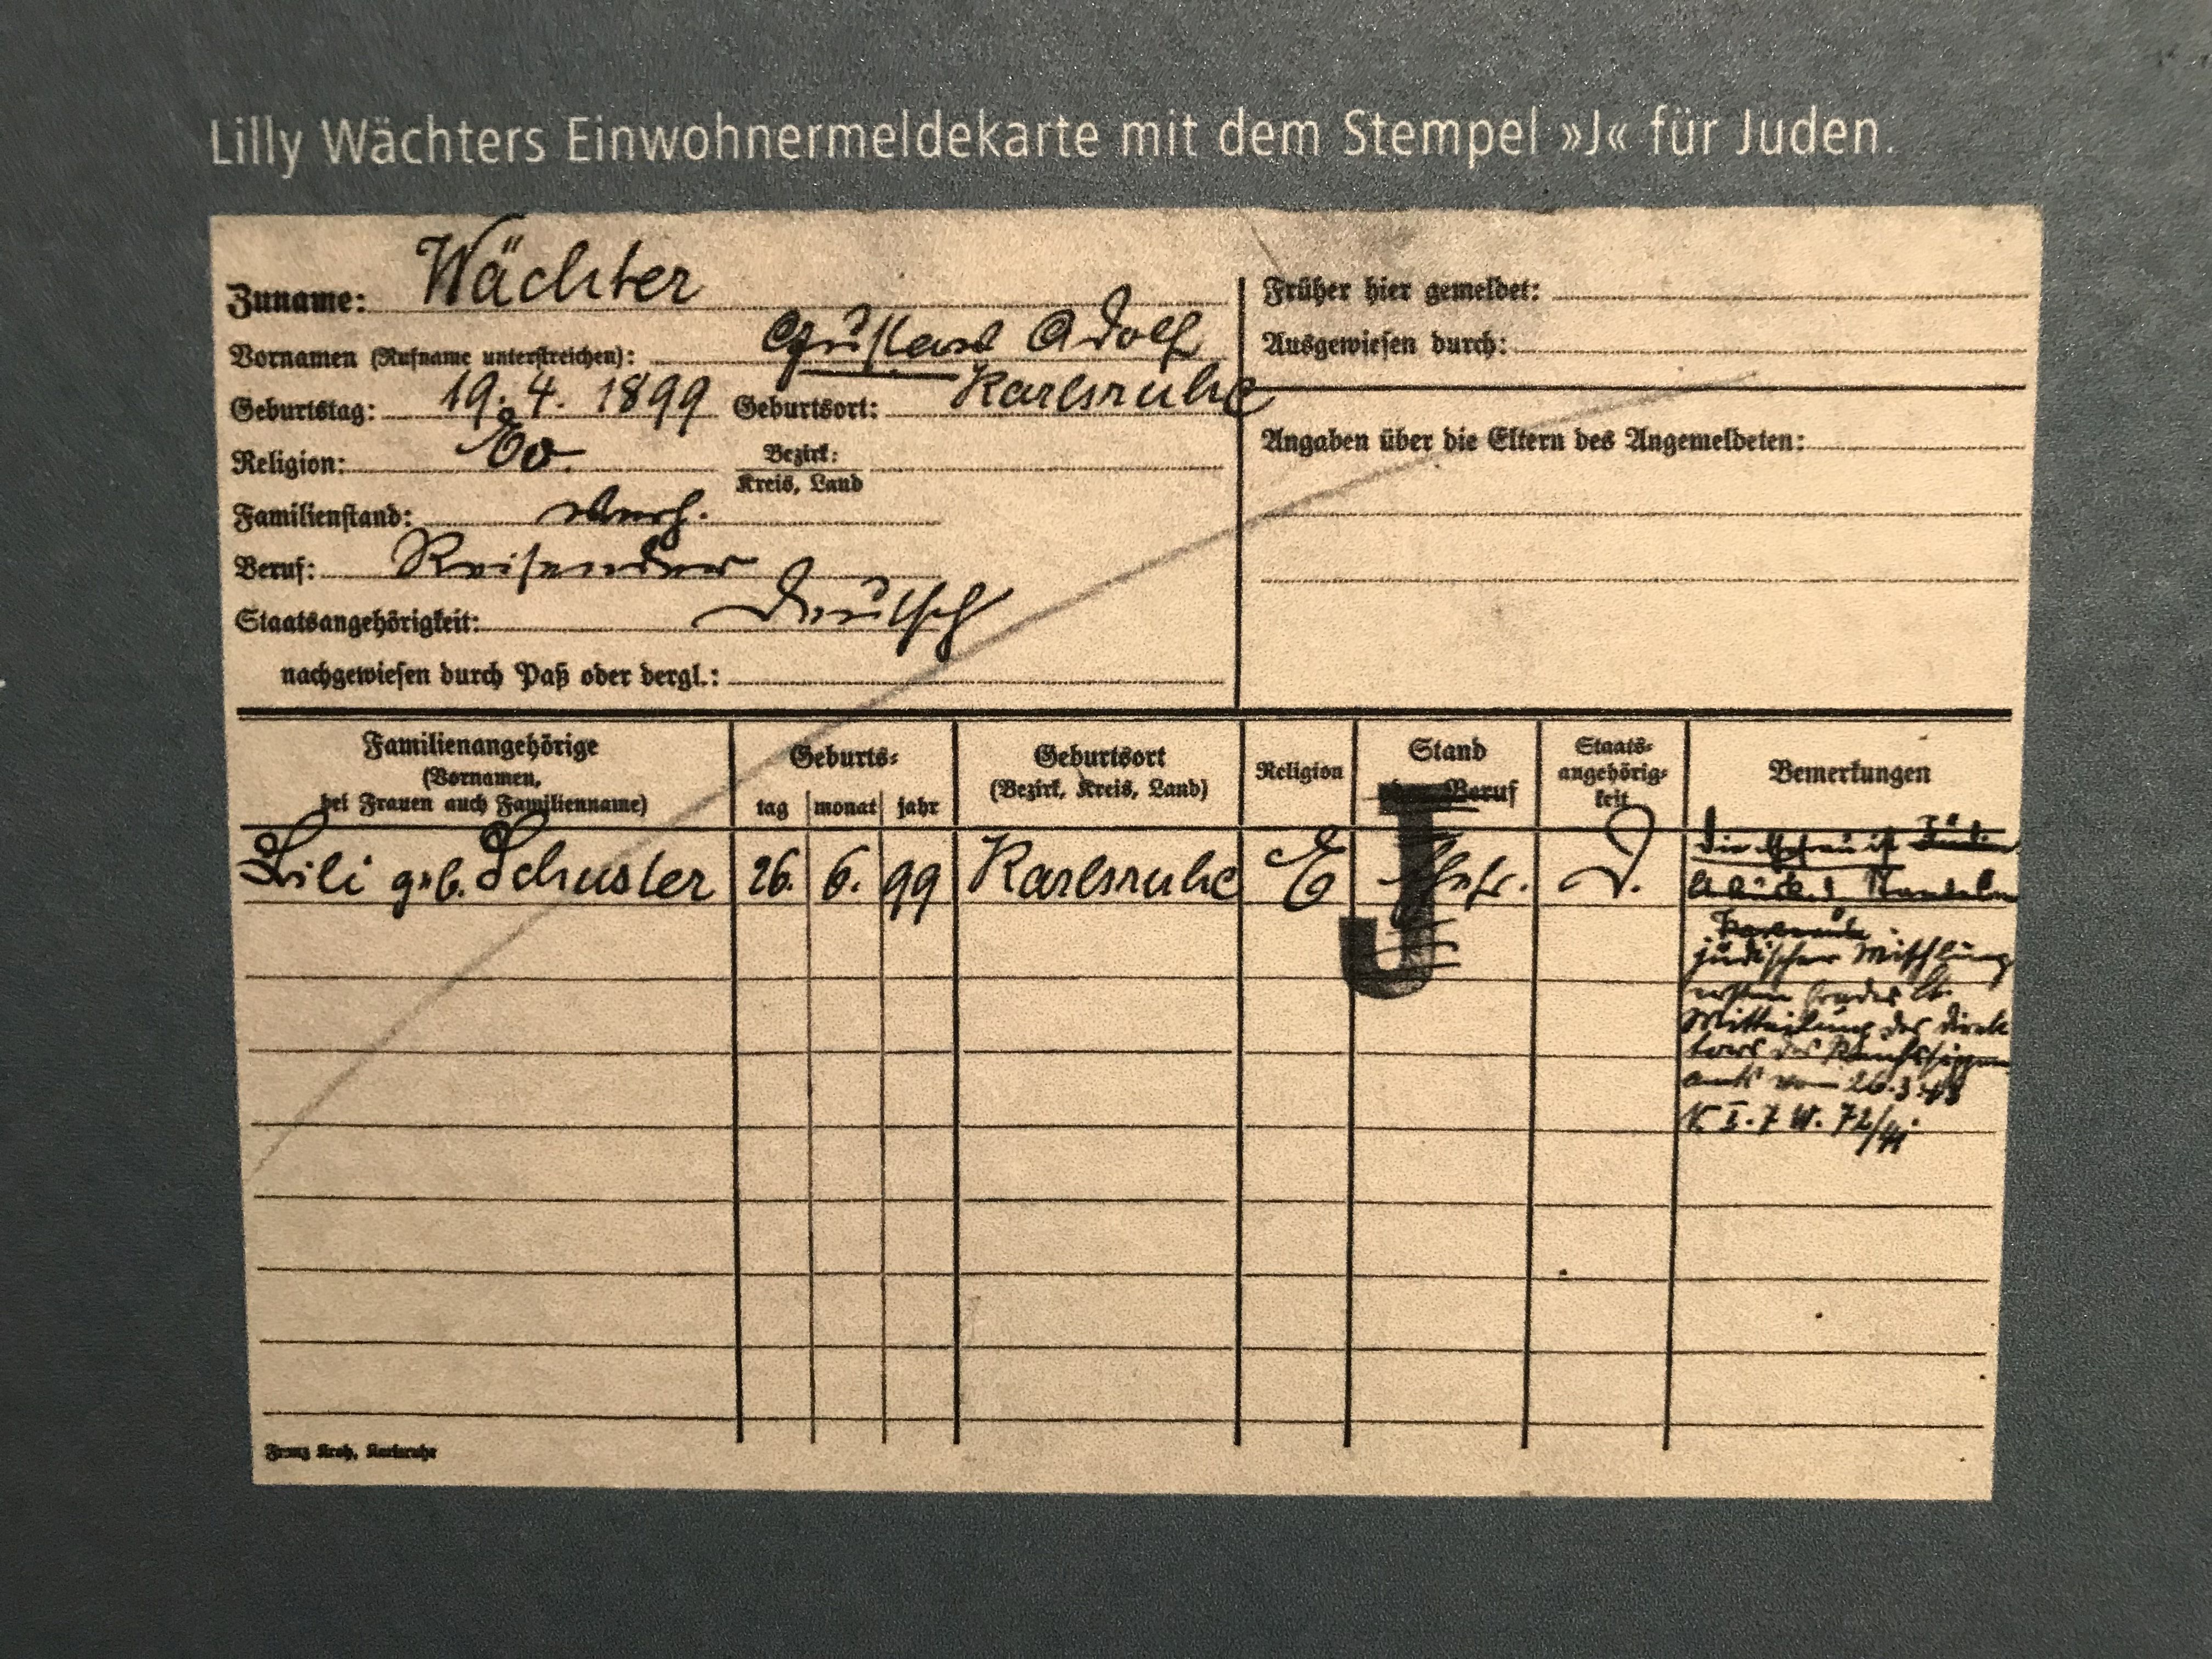 Lilly Wächters Einwohnermeldekarte mit dem Stempel »J« für Juden.
Zuname: Wächter
Vornamen (Rufname unterstreichen): Gustav Adolf
Geburtstag: 19.4. 1899 Geburtsort: Karlsruhe
Religion: Ev. Bezirk:
Kreis, Land
Familienstand: verh.
Beruf: Reisender
Staatsangehörigkeit: Deutsch
nachgewiesen durch Paß oder dergl.:
Früher hier gemeldet:
Ausgewiesen durch:
Angaben über die Eltern des Angemeldeten:
Familienangehörige
(Vornamen,
bei Frauen auch Familienname)
Geburts-
tag monat jahr
Geburtsort
(Bezirk, Kreis, Land)
Religion
Stand
Beruf
Staats-
angehörig-
keit
Bemerkungen
Lili geb. Schuster 26. 6. 99 Karlsruhe E Ehefr. D.
J
die Ehefrau ist Jüdin
jüdischer Mischling
ersten Grades lt.
Mitteilung des Direk
tors des Reichssippen
amts vom 26.3.43
Franz Kroh, Karlsruhe